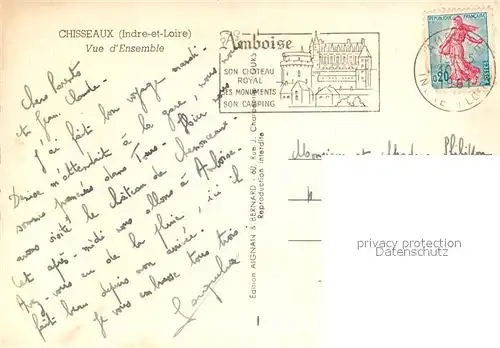 CHISSEAUX (Indre-et-Loire)
Vue d'Ensemble
Amboise
SON CHATEAU
ROYAL
SES MONUMENTS
SON CAMPING
REPUBLIQUE FRANÇAISE
0,20
POSTES
Chers Parents
et Jean Claude.
J'ai fait bon voyage mardi.
Denise m'attendait à la gare, nous nous
sommes promenées dans Tours. Hier nous
avons visité le château de Chenonceaux.
Cet après-midi nous allons à Amboise.
Avez-vous eu de la pluie, ici il
fait beau depuis mon arrivée.
Je vous embrasse tous trois
Edition AIGNAN & BERNARD - 60, Rue J. Charpentier TOURS
Reproduction interdite
Monsieur et Madame
privacy protection
Datenschutz